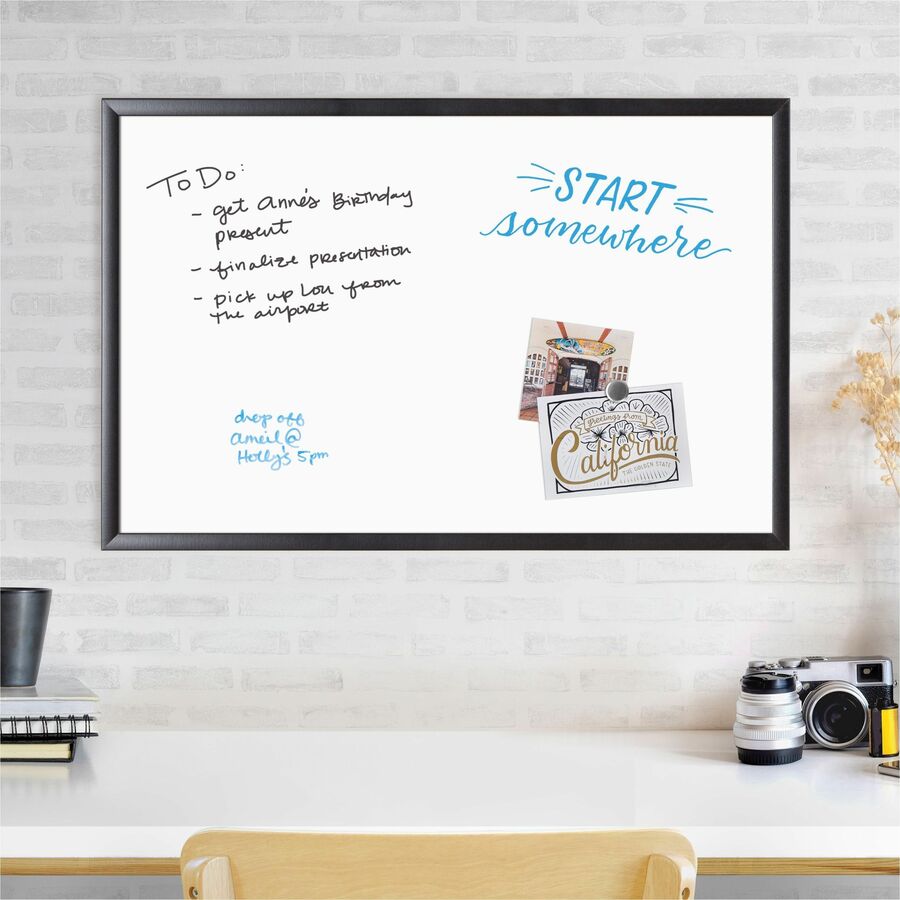 To Do:
- get Anne's Birthday
present
- finalize presentation
- pick up Lou from
the airport
START
somewhere
drop off
@
Holly's 5pm
greetings from
California
THE GOLDEN STATE